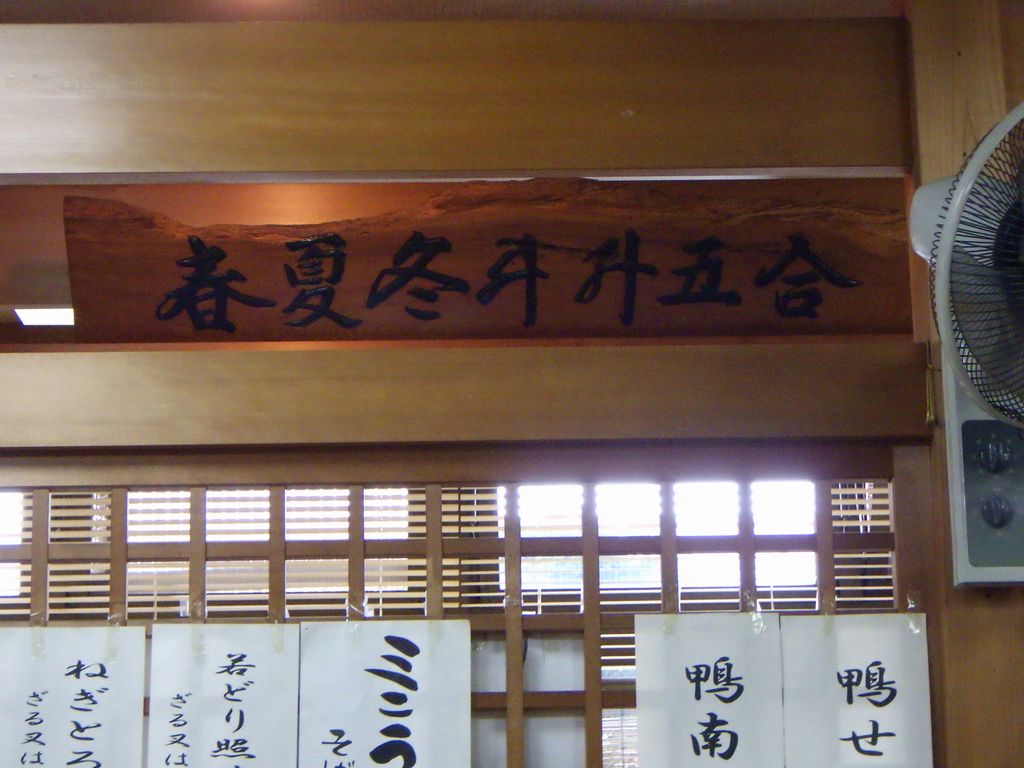 春夏冬升升五合
鴨せ
鴨南
ミニう
そば
若どり照
ざる又は
ねぎとろ
ざる又は